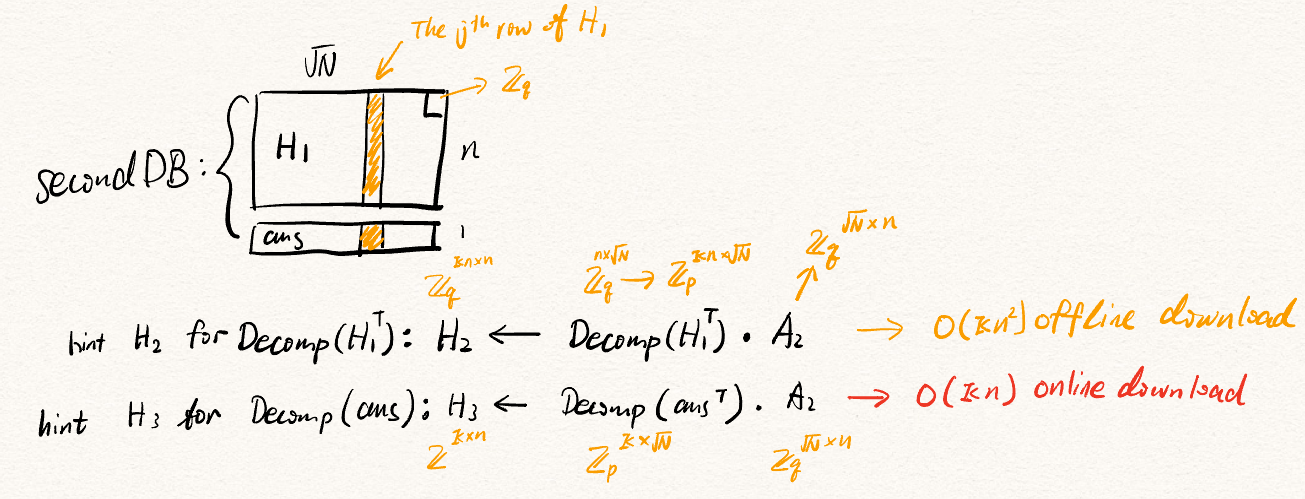 The jth row of H₁
√N
→ ℤq
H₁
n
second DB:
ans
1
ℤq^{κn×n}
ℤq^{n×√N} → ℤp^{κn×√N}
ℤq^{√N×n}
hint H₂ for Decomp(H₁ᵀ): H₂ ← Decomp(H₁ᵀ) · A₂ → O(κn²) offline download
hint H₃ for Decomp(ans): H₃ ← Decomp(ansᵀ) · A₂ → O(κn) online download
ℤ^{κ×n}
ℤp^{κ×√N}
ℤq^{√N×n}